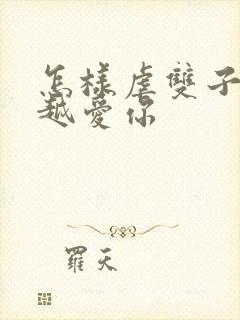 怎樣虐雙子
越愛你
羅天